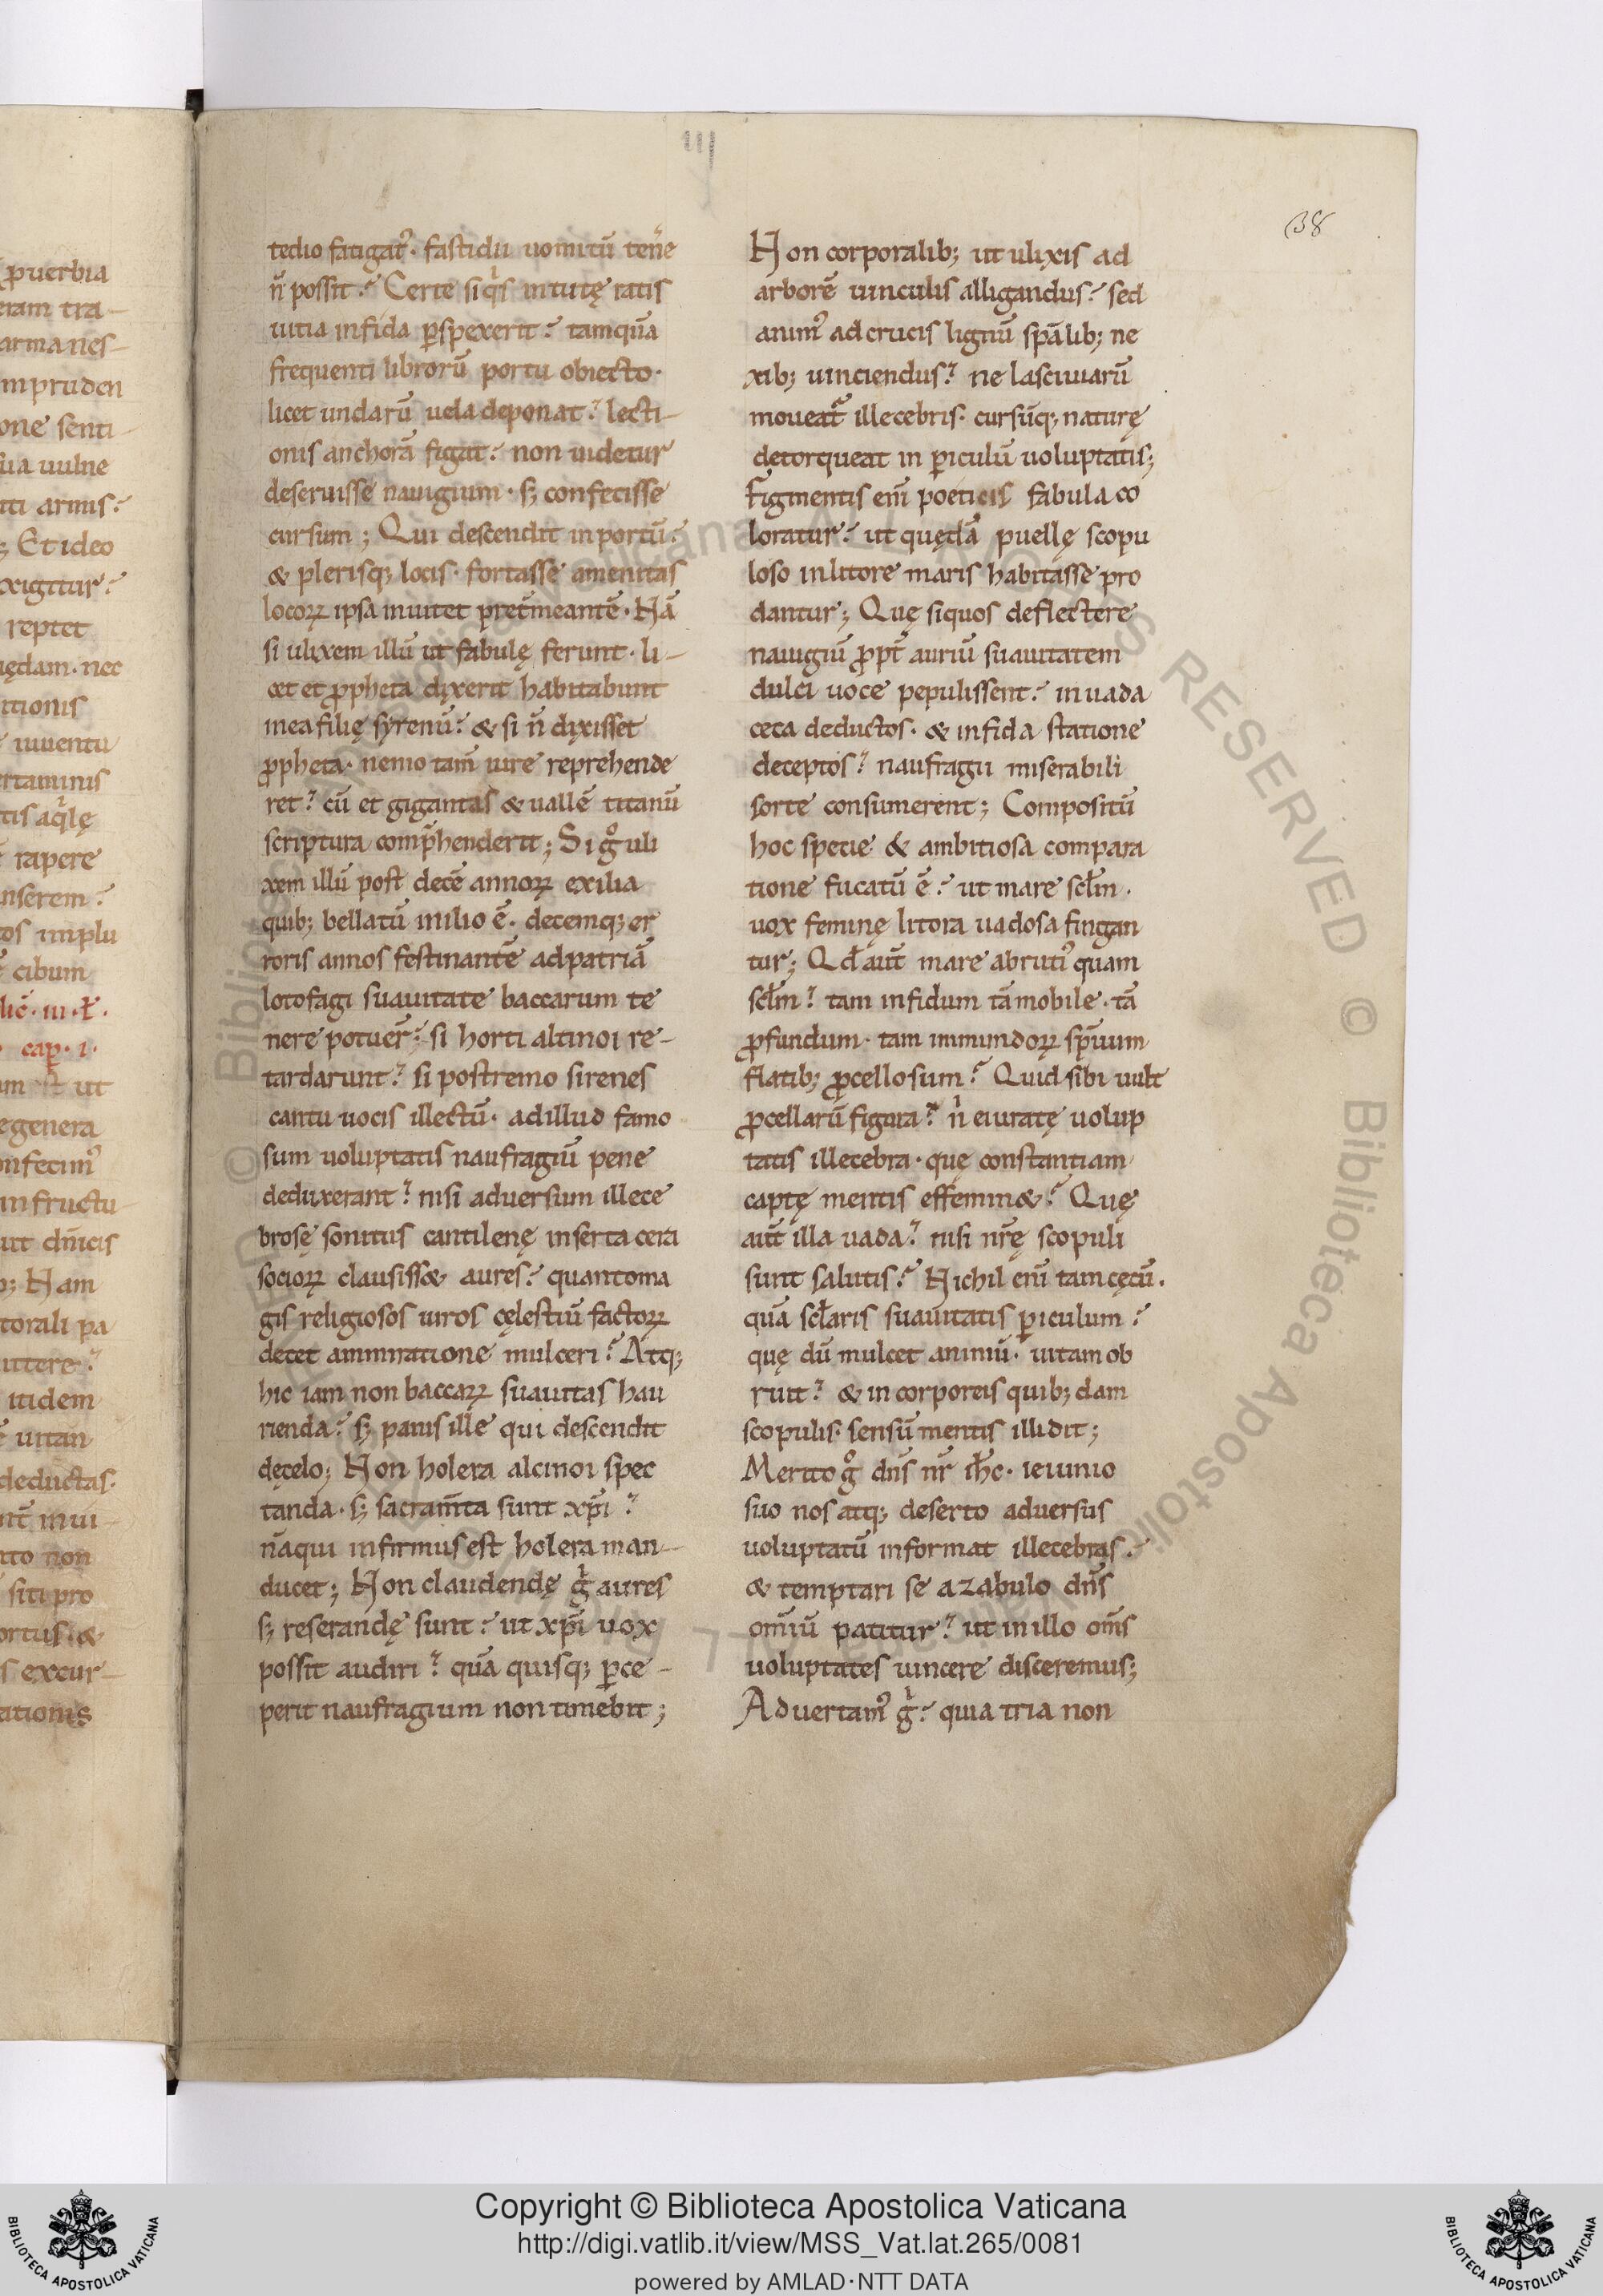 ꝓuerbia
eram tra-
arma nes-
mpruden
one senti-
sua uulne
ti armis?
; Et ideo
xigitur?
reptet
uędam· nec
itionis
iuuentu
rtaminis
tis aq̍lę
rapere
nserem?
tos implu
cibum
lic̄·iii·t̄·
cap̄·i·
am est ut
egenera
onfecim᷒
in fructu
ut dn̄icis
; Nam
torali pa
uttere?
itidem
uitan
deductas·
nt̄ inui-
tto non
siti pro
ortus· &
s excur-
ationis
tedio fatigat᷒· fastidii uomitū ten̄e
n̄ possit? Certe siq̍s intutę ratis
uitia infida ꝑspexerit? tamquā
frequenti librorū portu obiecto·
licet undarū uela deponat? lecti-
onis anchorā figat? non uidetur
deseruisse nauigium· sꝫ confecisse
cursum; Qui descendit in portū?
& plerisqꝫ locis· fortasse amenitas
locoꝝ ipsa inuitet pret̄meantē· Nā
si ulixem illū ut fabulę ferunt· li-
cet et ꝓpheta dixerit habitabunt
in ea filię syrenū? & si n̄ dixisset
ꝓpheta· nemo tam̄ iure reprehende
ret? cū et gigantas & uallē titanū
scriptura comp̄henderit; Si gͦ uli
xem illū post decē annoꝝ exilia
quibꝫ bellatū inilio ē· decemqꝫ er
roris annos festinantē ad patriā
lotofagi suauitate baccarum te
nere potuer̄? si horti altinoi re-
tardarunt? si postremo sirenes
cantu uocis illectū· ad illud famo
sum uoluptatis naufragiū pene
deduxerant? nisi aduersum illece
brosę sonitus cantilenę inserta cera
socioꝝ clausiss& aures? quantoma
gis religiosos uiros cęlestiū factoꝝ
decet ammiratione mulceri? Atqꝫ
hic iam non baccaꝝ suauitas hau
rienda? sꝫ panis ille qui descendit
dęcelo; Non holera alcinoi spec
tanda· sꝫ sacram̄ta sunt xp̄i?
nāqui infirmus est holera man-
ducet; Non claudendę g̍ aures
sꝫ reserandę sunt? ut xp̄i uox
possit audiri? quā quisqꝫ ꝑce-
perit naufragium non timebit;
138
Non corporalibꝫ ut ulixis ad
arborē uinculis alligandus? sed
anim᷒ ad crucis lignū spālibꝫ ne
xibꝫ uinciendus? ne lasciuiarū
moueat᷑ illecebris· cursūqꝫ naturę
detorqueat in ꝑiculū uoluptatis;
Figmentis em̄ poeticis fabula co
loratur? ut quędā puellę scopu
loso inlitore maris habitasse pro
dantur; Quę siquos deflectere
nauigiū ꝓpt̄ auriū suauitatem
dulci uoce pepulissent? in uada
ceca deductos· & infida statione
deceptos? naufragii miserabili
sorte consumerent; Compositū
hoc specie & ambitiosa compara
tione fucatū ē? ut mare scl̄m·
uox feminę litora uadosa fingan
tur; Qd̄ aut̄ mare abruti᷒ quam
scl̄m? tam infidum tā mobile· tā
ꝓfundum· tam immundoꝝ spūum
flatibꝫ ꝓcellosum? Quid sibi uult
ꝓcellarū figura? n̍ eiuratę uolup
tatis illecebra· quę constantiam
captę mentis effemin&? Quę
aut̄ illa uada? nisi nr̄ę scopuli
sunt salutis? Nichil em̄ tam cęcū·
quā scl̄aris suauitatis ꝑiculum?
quę dū mulcet animū· uitam ob
ruit? & in corporeis quibꝫdam
scopulis· sensū mentis illidit;
Merito gͦ dn̄s nr̄ ih̄c· ieiunio
suo nos atqꝫ deserto aduersus
uoluptatū informat illecebras?
& temptari se a zabulo dn̄s
om̄iū patitur? ut in illo om̄s
uoluptates uincere disceremus;
Aduertam᷒ g̍? quia tria non
© Biblioteca Apostolica Vaticana
ALL RIGHTS RESERVED
Copyright © Biblioteca Apostolica Vaticana
http://digi.vatlib.it/view/MSS_Vat.lat.265/0081
powered by AMLAD·NTT DATA
BIBLIOTECA APOSTOLICA VATICANA
BIBLIOTECA APOSTOLICA VATICANA